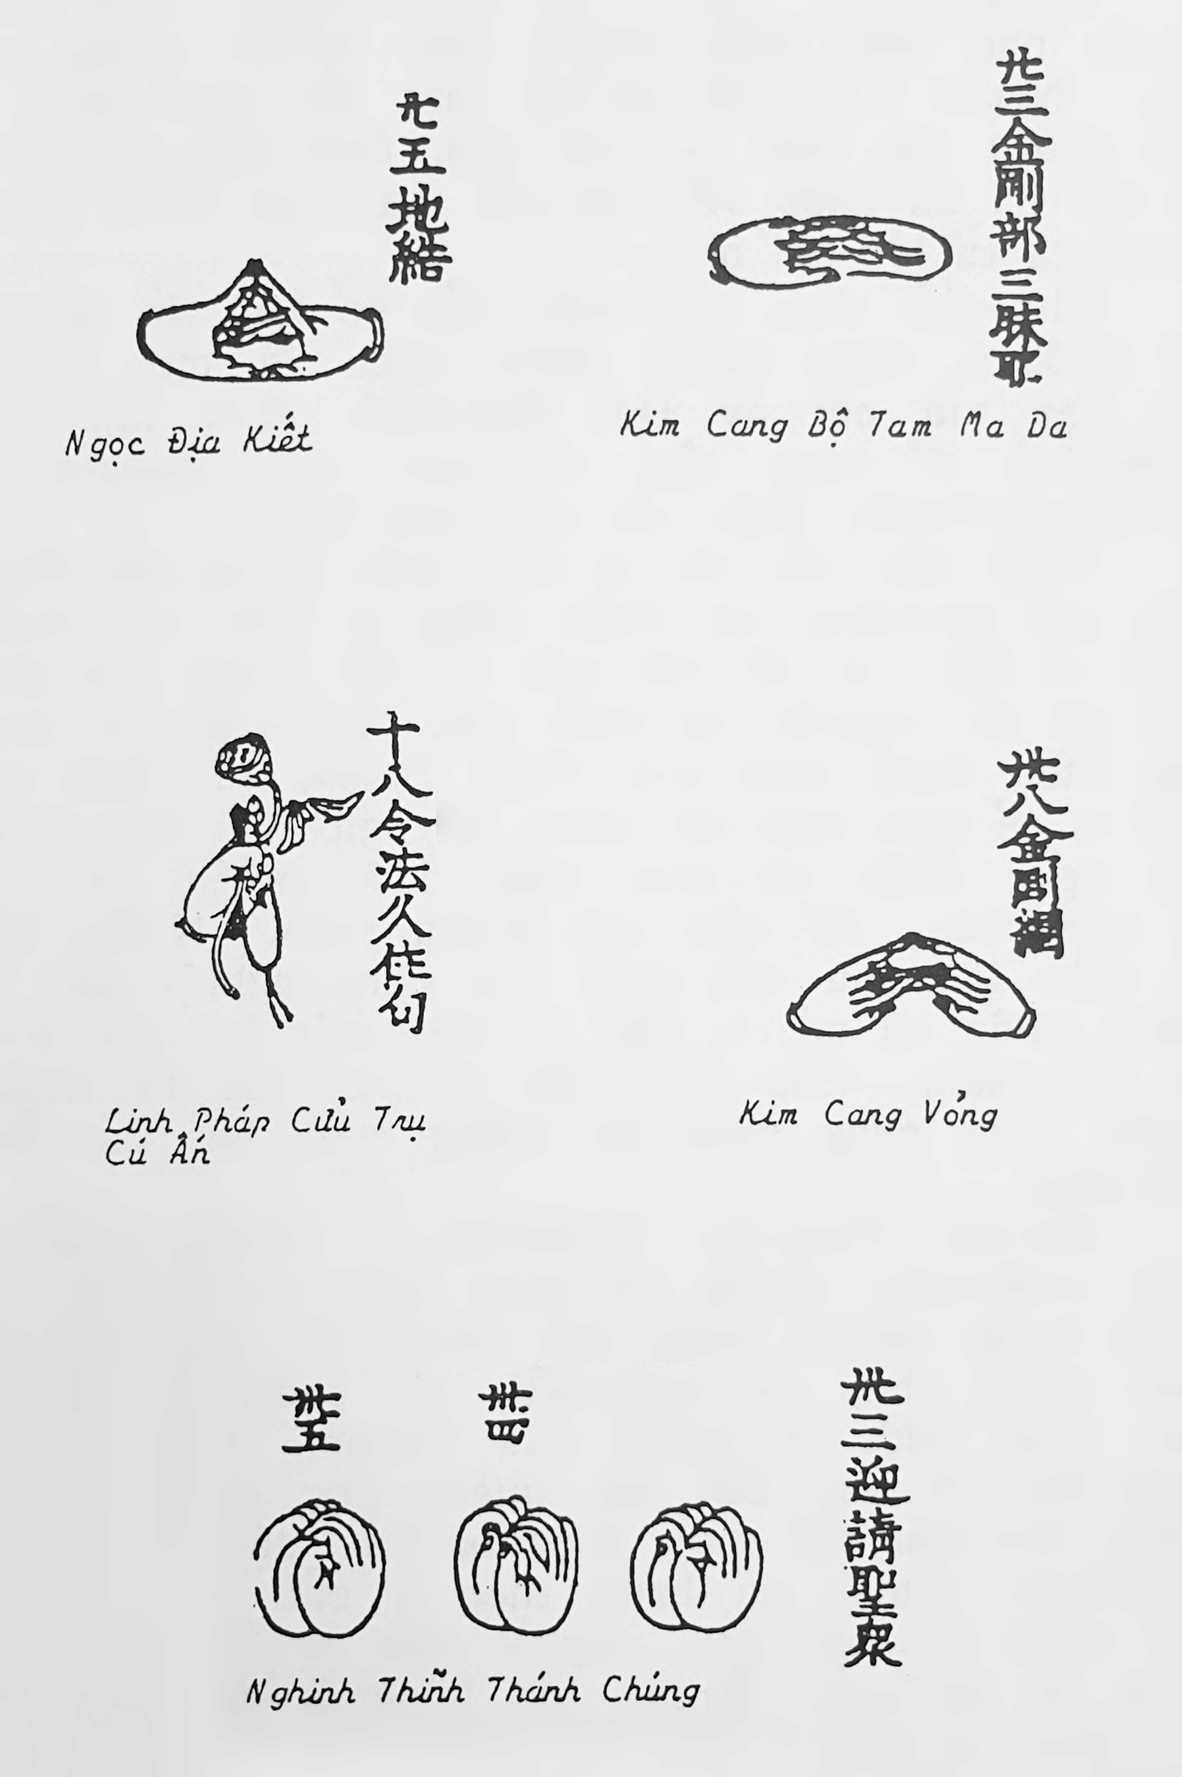 廿五地結
Ngọc Địa Kiết
廿三金剛部三昧耶
Kim Cang Bộ Tam Ma Da
十八令法久住句
Linh Pháp Cửu Trụ
Cú Ấn
卅八金剛網
Kim Cang Vỏng
卅五
卅四
卅三迎請聖衆
Nghinh Thiñh Thánh Chúng